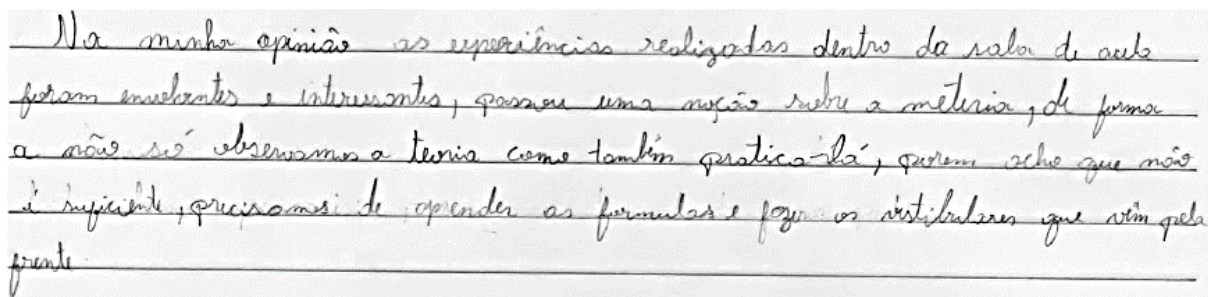 Na minha opinião as experiências realizadas dentro da sala de aula
foram envolventes e interessantes, passou uma noção sobre a meteria, de forma
a não só observamos a teoria como também pratica-lá, porem acho que não
é suficiente, precisamos de aprender as formulas e fazer os vistibulares que vêm pela
frente